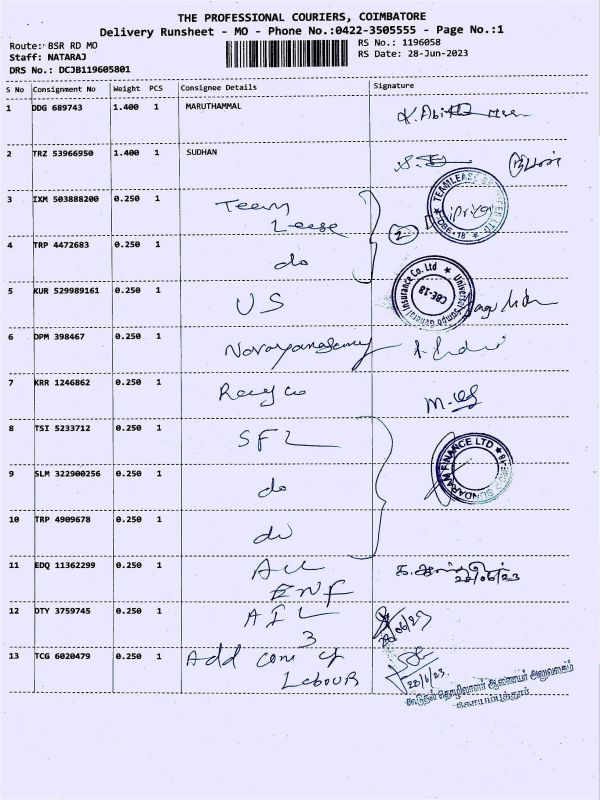 THE PROFESSIONAL COURIERS, COIMBATORE
Delivery Runsheet - MO - Phone No.:0422-3505555 - Page No.:1
Route:: BSR RD MO
RS No.: 1196058
Staff: NATARAJ
RS Date: 28-Jun-2023
DRS No.: DCJB119605801
S No Consignment No Weight PCS Consignee Details Signature
1 DDG 689743 1.400 1 MARUTHAMMAL
2 TRZ 53966950 1.400 1 SUDHAN
3 IXM 503888200 0.250 1 Team
Lease
2
4 TRP 4472683 0.250 1 do
5 KUR 529989161 0.250 1 US
Universal Sompo General Insurance Co. Ltd
CBE-18
6 DPM 398467 0.250 1 Narayanasamy
7 KRR 1246862 0.250 1
8 TSI 5233712 0.250 1 SFL
SUNDARAM FINANCE LTD
9 SLM 322900256 0.250 1 do
10 TRP 4909678 0.250 1 do
11 EDQ 11362299 0.250 1
ENF
28/06/23
12 DTY 3759745 0.250 1 AIL
3
13 TCG 6020479 0.250 1 Add com of
Labour
28/6/23
கூடுதல் தொழிலாளர் ஆணையர் அலுவலகம்
கோயம்புத்தூர்